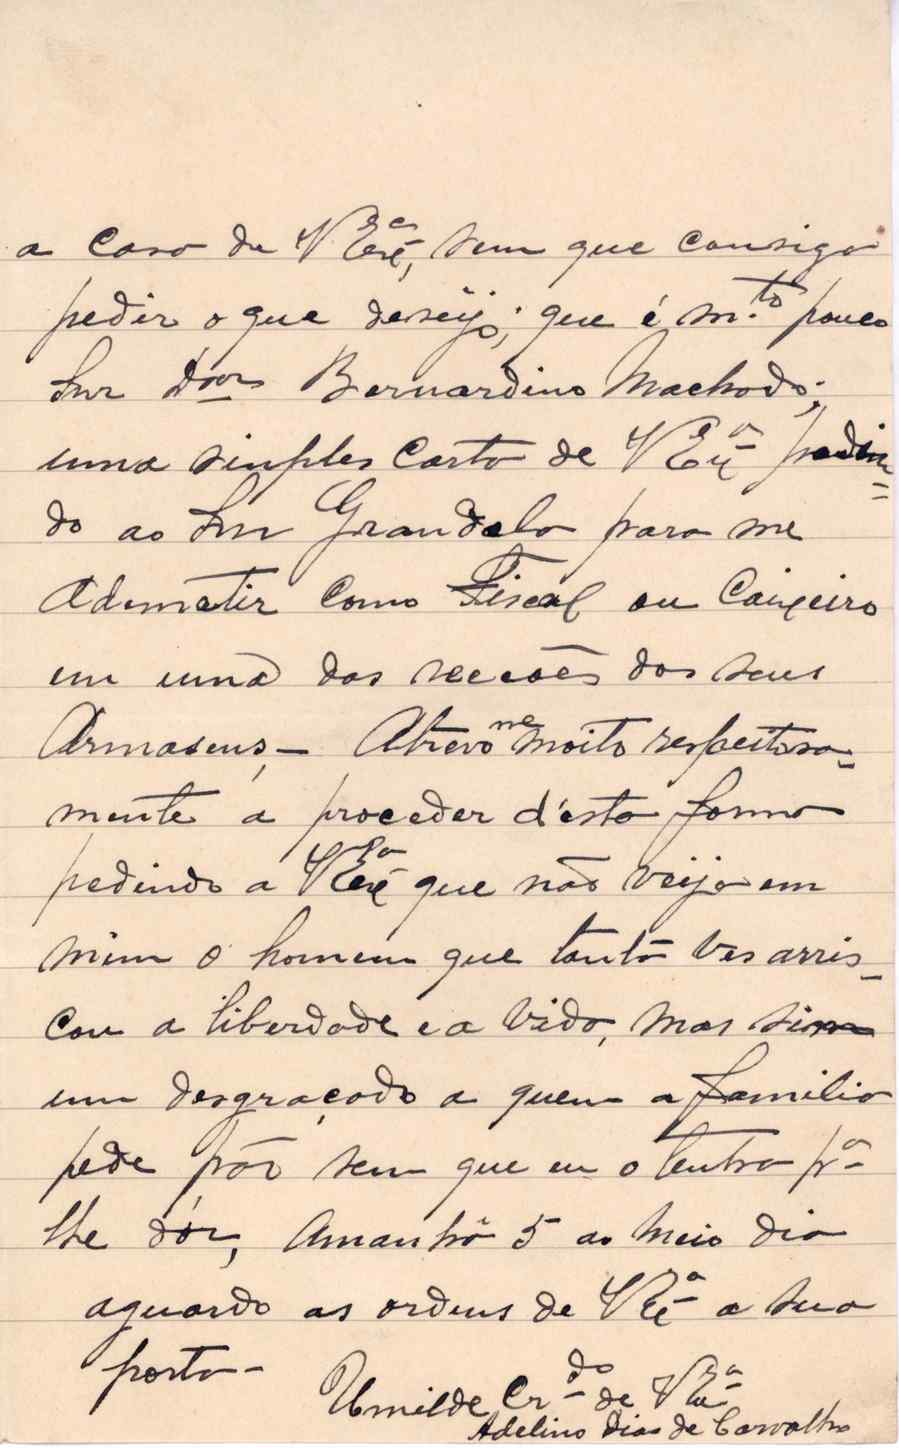 a casa de V Exª, sem que consiga
pedir o que desejo; que é m.to pouco
Snr Dour Bernardino Machado;
uma simples carta de V Exª pedin=
do ao Snr Grandela para me
Ademetir como Fiscal ou Caixeiro
em uma das secções dos seus
Armasens, – Atrevo me moito respeitosa=
mente a proceder d'esta forma
pedindo a V Exª que não veija em
mim o homem que tanta ves arris=
cou a liberdade e a vida, mas sim
um desgraçado a quem a familia
pede pão sem que eu o tenha pª
lhe dár, Amanhã 5 ao meio dia
aguardo as ordens de V Exª a sua
porta –
Umilde Cr.do de V Exª
Adelino Dias de Carvalho